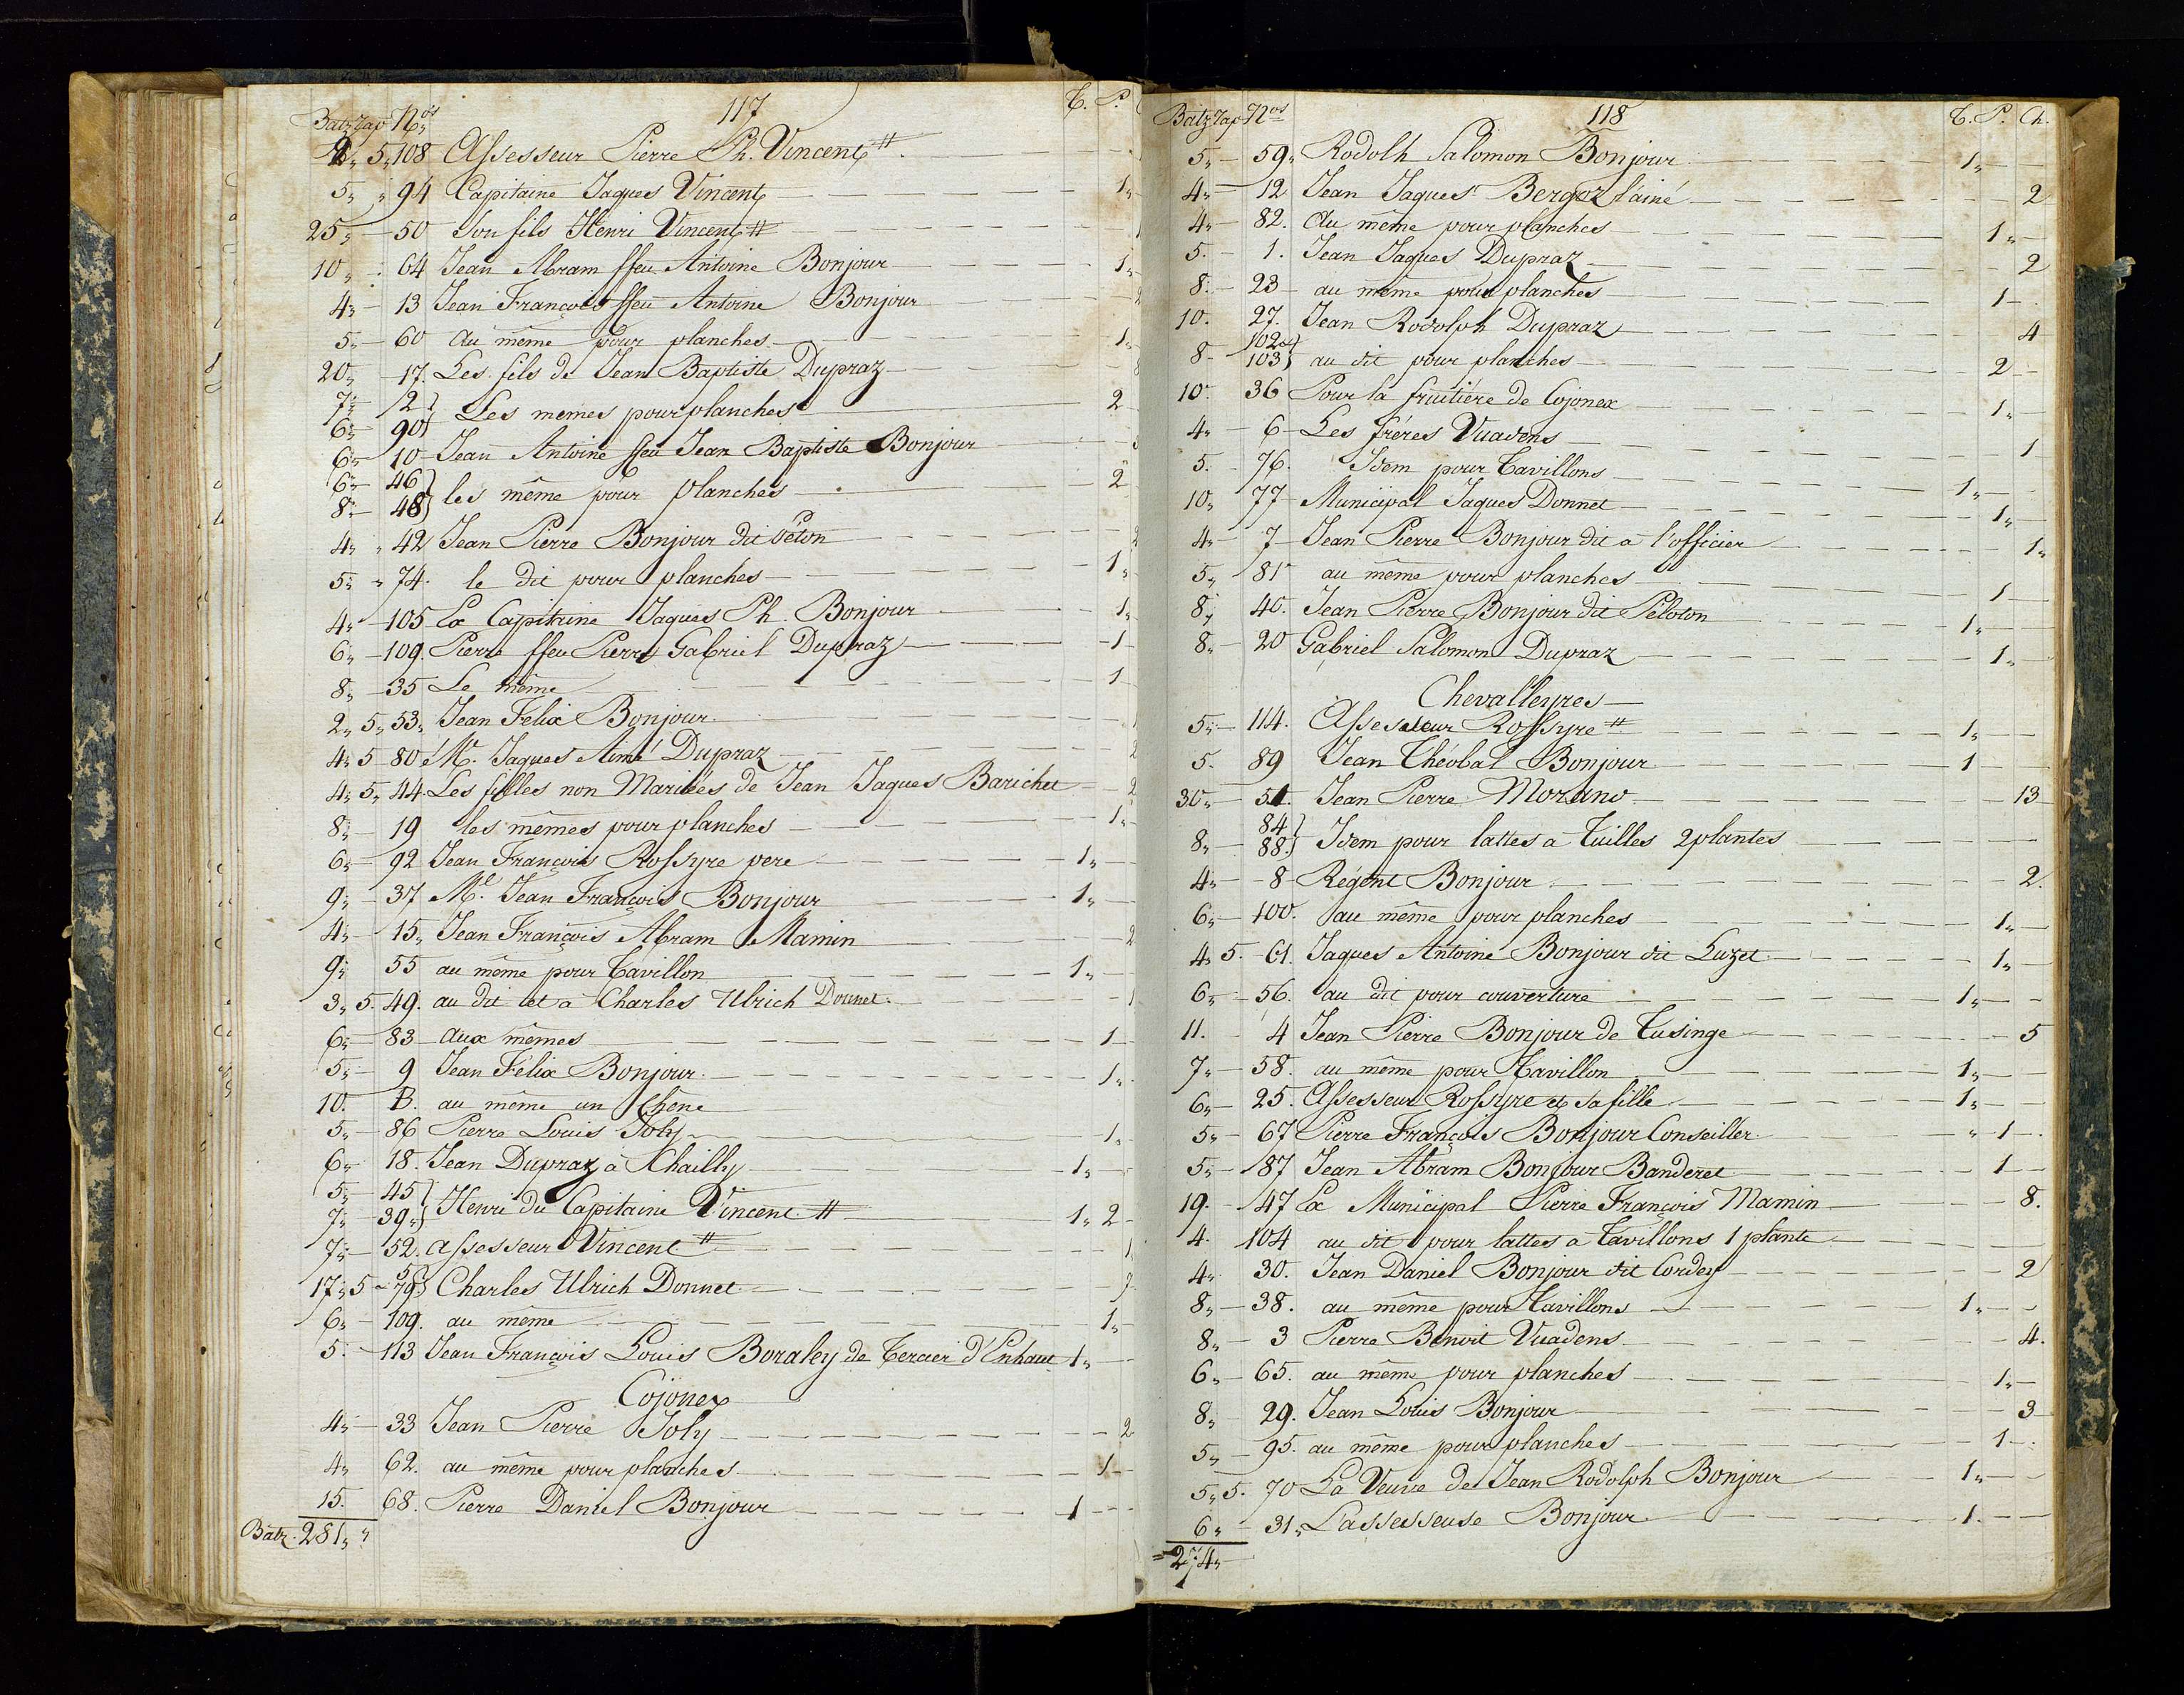 117
Batz rap Nos T. P.
2,, 5,, 108 Assesseur Pierre Ph. Vincent #
5,, ,, 94 Capitaine Jaques Vincent 1,,
25,, 50 Son fils Henri Vincent #
10,, 64 Jean Abram ffeu Antoine Bonjour 1,,
4,, 13 Jean François ffeu Antoine Bonjour 2
5,, 60 Au même pour planches 1,,
20,, 17. Les fils de Jean Baptiste Dupraz 8
7,, 2 }
6,, 90 } Les memes pour planches 2
6,, 10 Jean Antoine ffeu Jean Baptiste Bonjour
6,, 46 }
8,, 48 } les même pour planches 2
4,, 42 Jean Pierre Bonjour dit Péton 2
5,, 74. le dit pour planches 1,,
4,, 105 Ex Capitaine Jaques Ph. Bonjour 1,,
6,, 109. Pierre ffeu Pierre Gabriel Dupraz 1
8,, 35 Le même 1
2,, 5,, 53,, Jean Felix Bonjour
4,, 5 80 Mr. Jaques Aimé Dupraz 2
4,, 5,, 44. Les filles non Mariées de Jean Jaques Barichet 2
8,, 19 les mêmes pour planches 1,,
6,, 92 Jean François Rossyre pere 1,,
9,, 37 Me. Jean François Bonjour 1,,
4,, 15,, Jean François Abram Mamin 2
9,, 55 au même pour Tavillon 1,,
3,, 5. 49. au dit et à Charles Ulrich Donnet 1
6,, 83 Aux mêmes 1
5,, 9 Jean Félix Bonjour 1,,
10. B. au même un Chene
5,, 86 Pierre Louis Joly 1,,
6,, 18. Jean Dupraz à Chailly 1,,
5,, 45 }
7,, 39,, } Henri du Capitaine Vincent # 1,, 2
7,, 52. assesseur Vincent # 1
17,, 5 5 79 } Charles Ulrich Donnet 7
6,, 109. au même 1,,
5. 113 Jean François Louis Boraley de Tercier d'Enhaut 1,,
Cojonex
4,, 33 Jean Pierre Joly 2
4,, 62. au même pour planches 1
15. 68. Pierre Daniel Bonjour 1
Batz. 281,, ,,
118
Batz rap Nos T. P. Ch.
5,, 59,, Rodolh Salomon Bonjour 1,,
4,, 12 Jean Jaques Bergoz l'ainé 2
4,, 82. Au même pour planches 1,,
5. 1. Jean Jaques Dupraz 2
8. 23 au même pour planches 1
10. 27. Jean Rodolph Dupraz 4
8 102 et 103 } au dit pour planches 2
10. 36 Pour la fruitière de Cojonex 1,,
4,, 6 Les frères Vuadens 1
5. 76. Idem pour Tavillons 1,,
10,, 77 Municipal Jaques Donnet 1,,
4,, 7 Jean Pierre Bonjour dit a l'officier 1,,
5,, 81 au même pour planches 1
8,, 40. Jean Pierre Bonjour dit Péloton 1,,
8,, 20 Gabriel Salomon Dupraz 1,,
Chevalleyres
5,, 114. Assesseur Rossyre # 1,,
5. 89 Jean Théobal Bonjour 1
30,, 51. Jean Pierre Morand 13
8,, 84 88. } Idem pour lattes a Tuilles 2 plantes
4,, 8 Régent Bonjour 2.
6,, 100. au même pour planches 1,,
4,, 5. 61. Jaques Antoine Bonjour dit Luzet 1,,
6,, 56. au dit pour couverture 1,,
11. 4 Jean Pierre Bonjour de Tusinge 5
7,, 58. au même pour Tavillon 1,,
6,, 25. Assesseur Rossyre et sa fille 1,,
5,, 67 Pierre François Bonjour Conseiller ,, 1
5,, 87 Jean Abram Bonjour Banderet 1
19. 47 Ex Municipal Pierre François Mamin 8.
4. 104 au dit pour lattes a Tavillons 1 plante
4,, 30. Jean Daniel Bonjour dit Cordey 2
8,, 38. au même pour Tavillons 1,,
8,, 3 Pierre Benoit Vuadens 4.
6,, 65. au même pour planches 1,,
8,, 29. Jean Louis Bonjour 3
5,, 95. au même pour planches 1
5,, 5. 70 La Veuve de Jean Rodolph Bonjour 1,,
6,, 31,, L'assesseuse Bonjour 1.
274,,